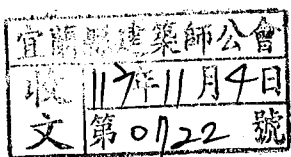 宜蘭縣建築師公會
收文
117年11月4日
第0722號